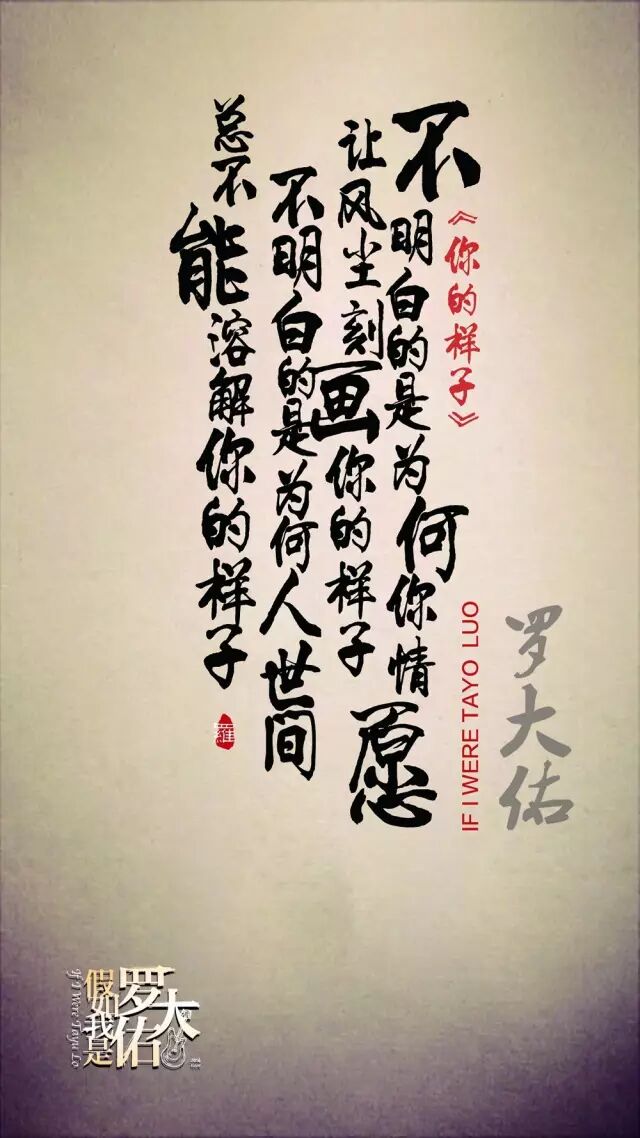 《你的样子》
不明白的是为何你情愿
让风尘刻画你的样子
不明白的是为何人世间
总不能溶解你的样子
羅
罗大佑
IF I WERE TAYO LUO
假如我是
罗大佑
If I Were Tayu Lo